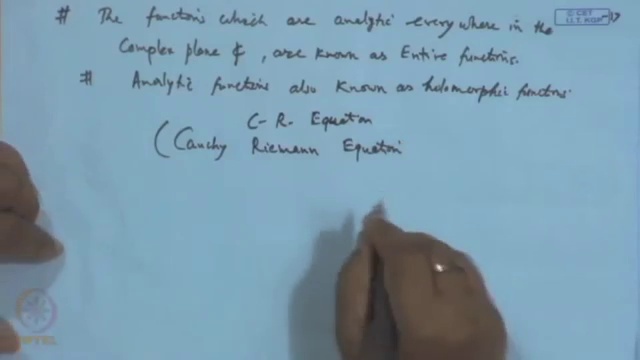 # The functions which are analytic everywhere in the
Complex plane ₵, are known as Entire functions.
# Analytic functions also known as holomorphic functions.
C-R- Equation
(Cauchy Riemann Equation
© CET
I.I.T. KGP
NPTEL